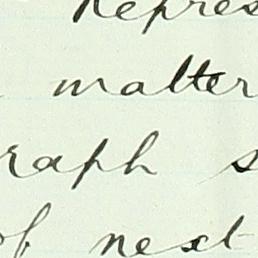 Repres
matter
raph s
of next